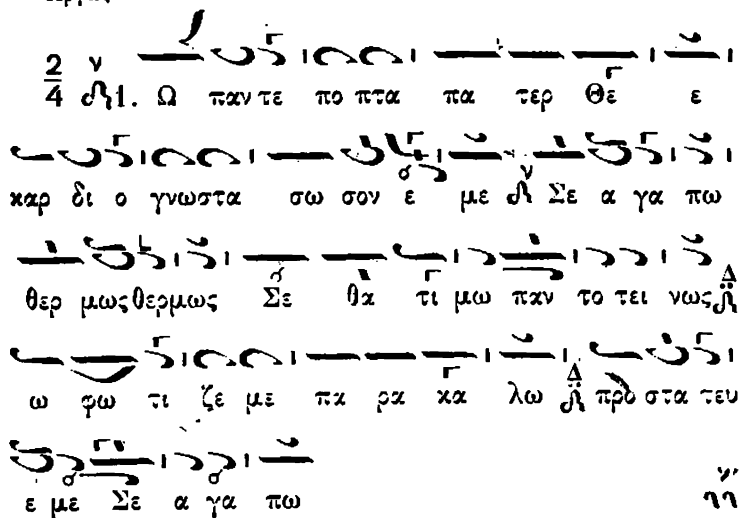 2/4 ν 1. Ω παν τε πο πτα πα τερ Θε ε
καρ δι ο γνωστα σω σον ε με ν Σε α γα πω
θερ μως θερμως Σε θα τι μω παν το τει νως Δ
ω φω τι ζε με πα ρα κα λω Δ προ στα τευ
ε με Σε α γα πω